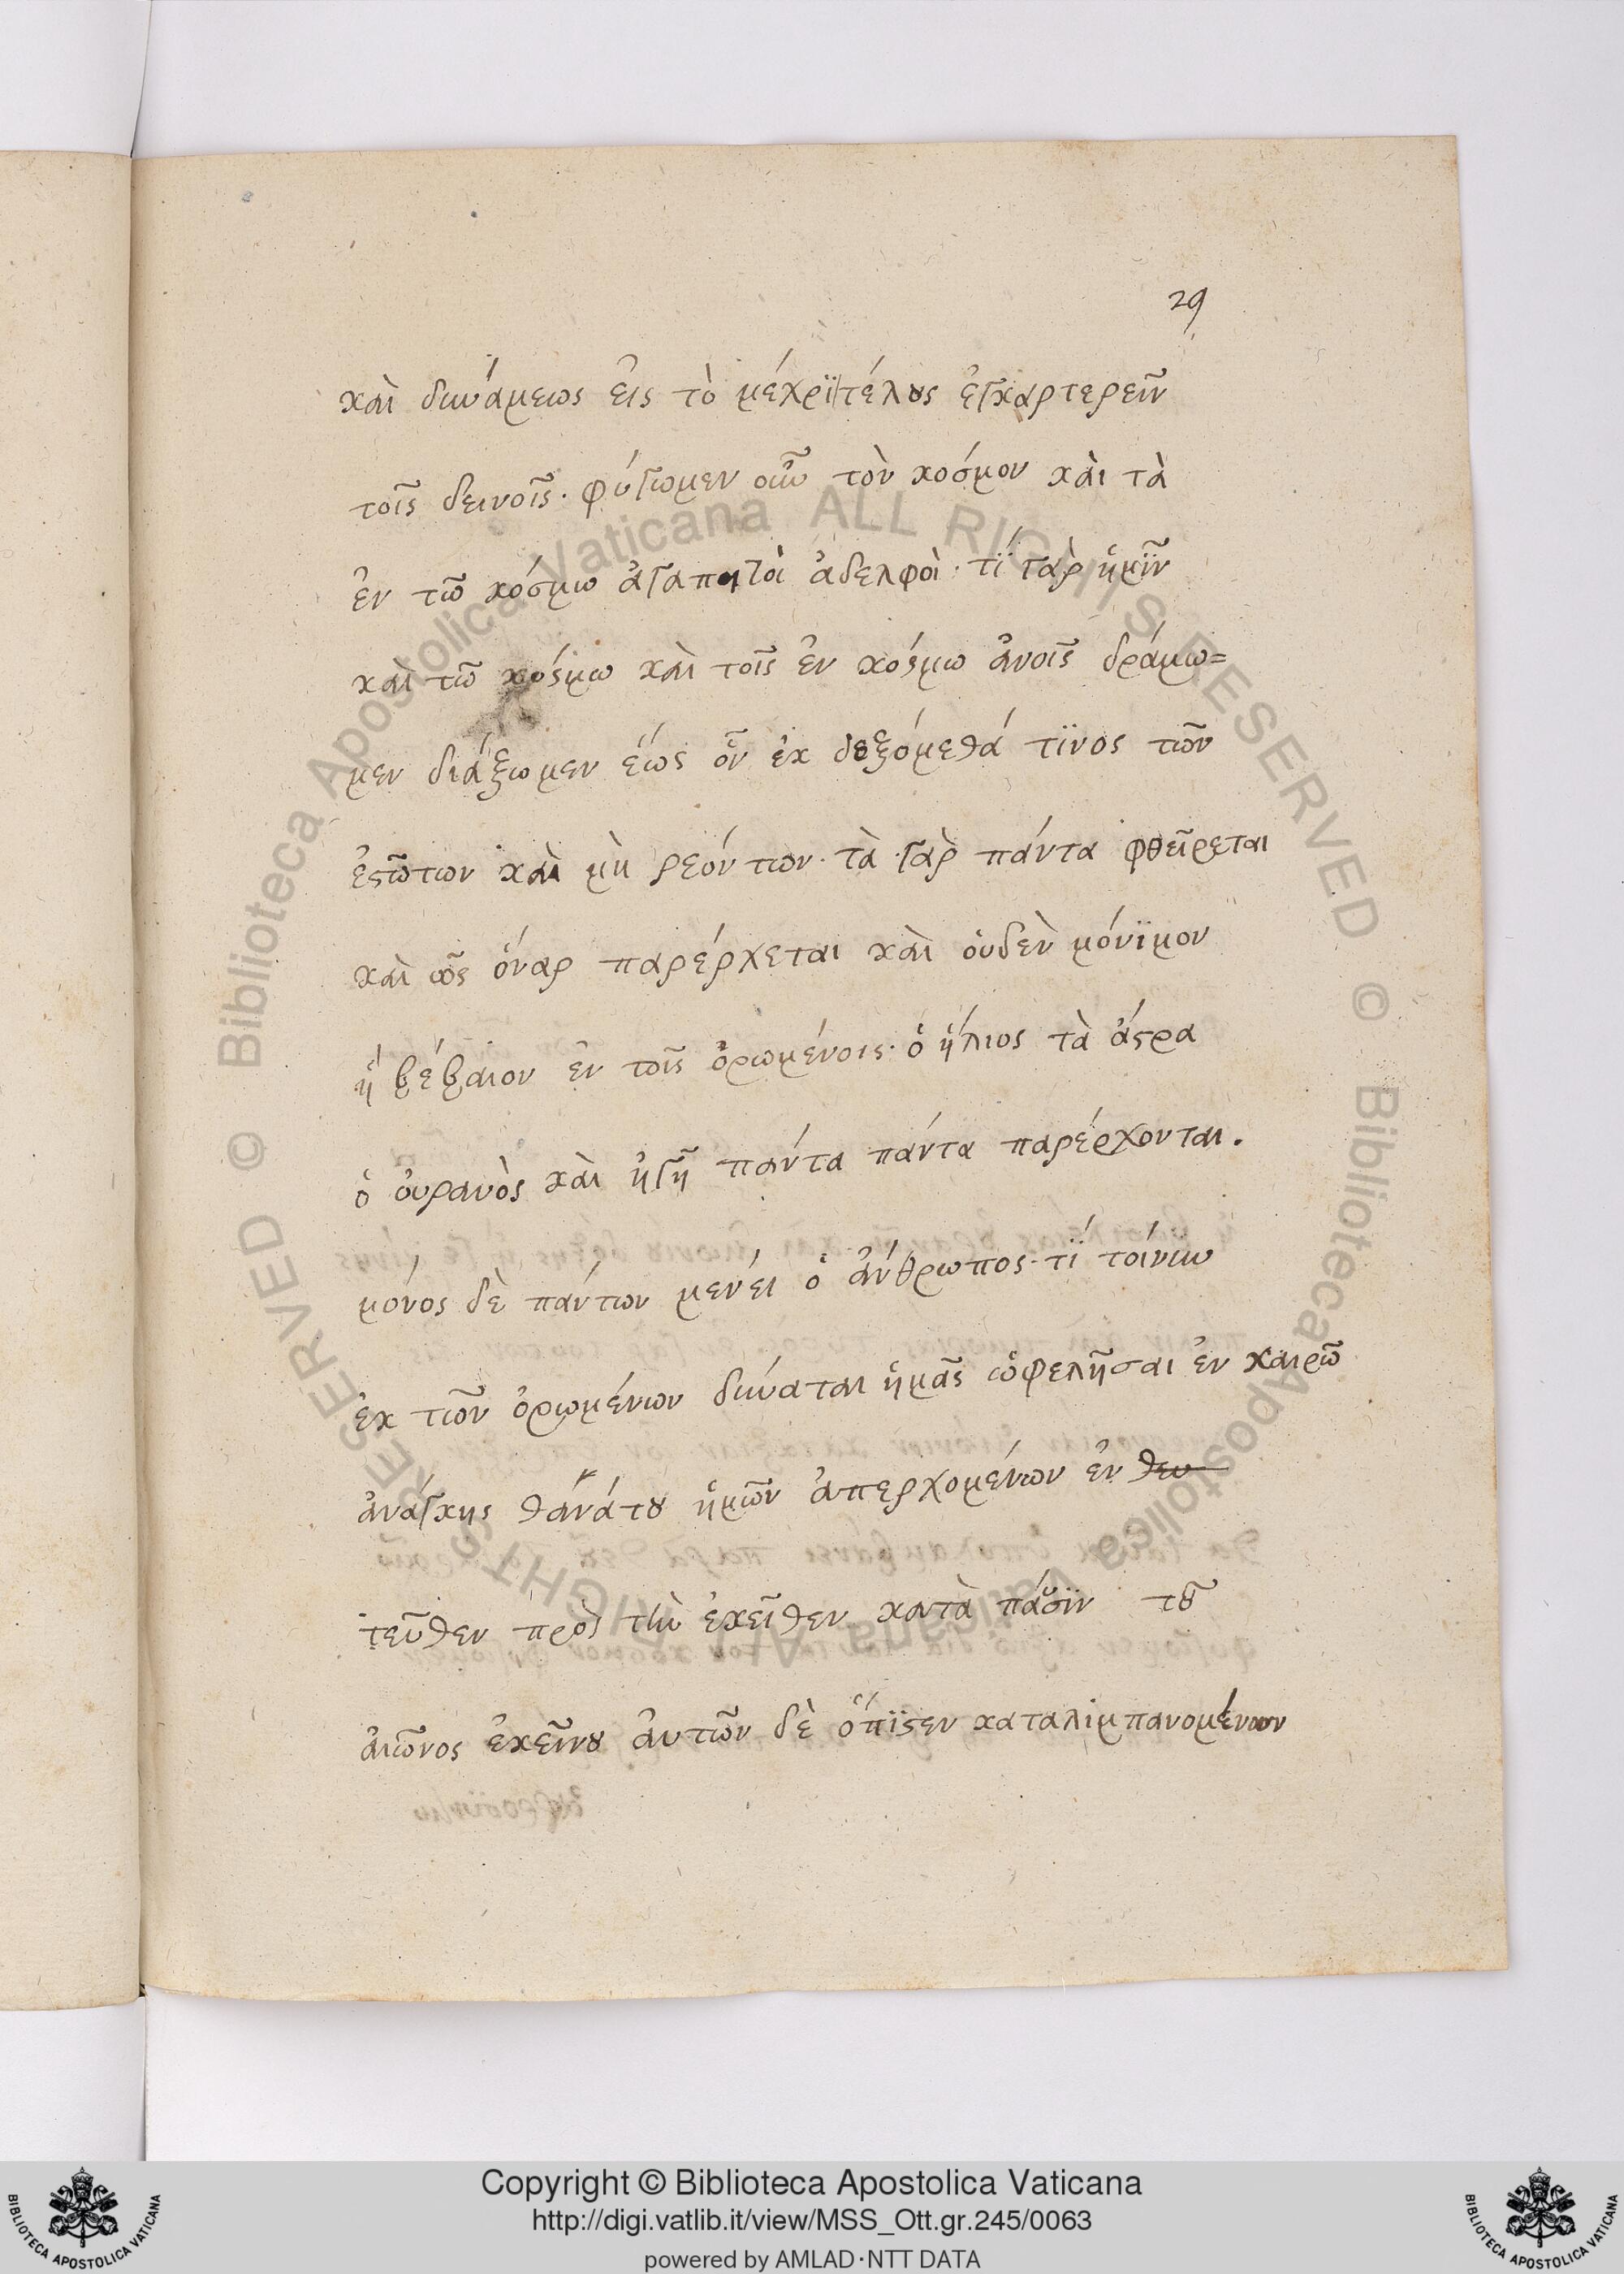 29
καὶ δυνάμεως εἰς τὸ μέχρϊ τέλους ἐγκαρτερεῖν
τοῖς δεινοῖς· φύγωμεν οὖν τὸν κοσμον καὶ τὰ
ἐν τῶ κόσμω ἀγαπητοὶ ἀδελφοὶ· τί γὰρ ἡμῖν
καὶ τῶ κόσμω καὶ τοῖς ἐν κόσμω ἀνοις δράμω=
μεν διάξωμεν ἕως οὗ ἐκ δεξόμεθά τϊνος τῶν
ἐστώτων καὶ μὴ ρεόντων· τὰ γὰρ πάντα φθεῖρεται
καὶ ὡς ὄναρ παρέρχεται καὶ οὐδὲν μόνϊμον
ἢ βέβαιον ἐν τοῖς ὁρωμένοις· ὁ ἥλιος τὰ ἄστρα
ὁ οὐρανὸς καὶ ἡ γῆ πάντα πάντα παρέρχονται.
μόνος δὲ πάντων μενέι ὁ ἄνθρωπος· τί τοίνυν
ἐκ τῶν ὁρωμένων δύναται ἡμᾶς ὠφελῆσαι ἐν καιρῶ
ἀνάγκης θανάτου ἡμῶν ἀπερχομένων ἐν θεν
τεῦθεν πρὸς τὴν ἐκεῖθεν κατὰ πάυσϊν τοῦ
ἀιῶνος ἐκεῖνου ἀυτῶν δὲ ὄπϊσεν καταλιμπανομένων
Copyright © Biblioteca Apostolica Vaticana
http://digi.vatlib.it/view/MSS_Ott.gr.245/0063
powered by AMLAD·NTT DATA
BIBLIOTECA APOSTOLICA VATICANA
BIBLIOTECA APOSTOLICA VATICANA
© Biblioteca Apostolica Vaticana ALL RIGHTS RESERVED
© Biblioteca Apostolica Vaticana ALL RIGHTS RESERVED